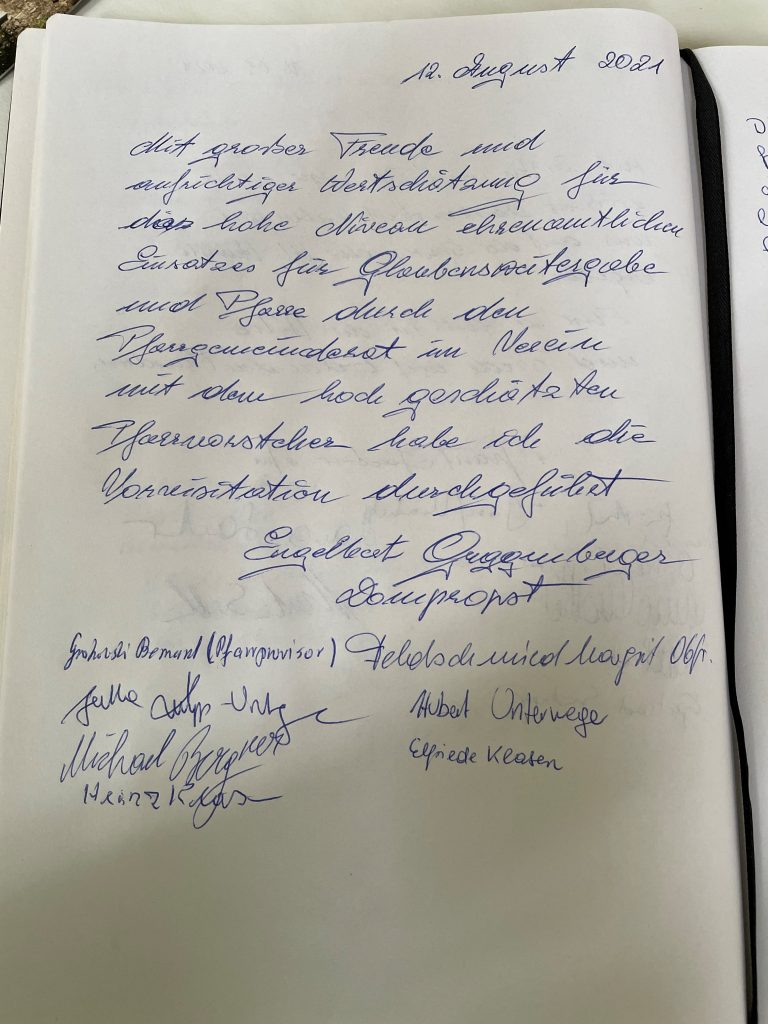 12. August 2021
Mit großer Freude und
aufrichtiger Wertschätzung für
das hohe Niveau ehrenamtlichen
Einsatzes für Glaubensweitergabe
und Pfarre durch den
Pfarrgemeinderat im Verein
mit dem hoch geschätzten
Pfarrvorsteher habe ich die
Vorvisitation durchgeführt
Engelbert Guggenberger
Dompropst
(Pfarrprovisor) Feldschmied Margit Obfr.
Hubert Unterweger
Michael Bergner
Elfriede Klasen
Heinz